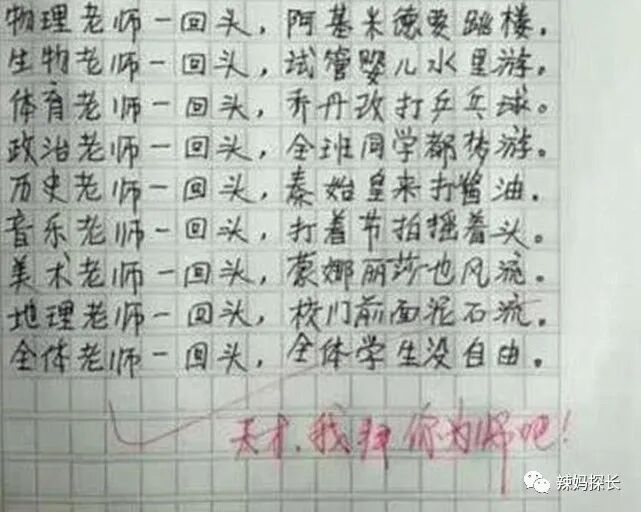 物理老师一回头，阿基米德要跳楼.
生物老师一回头，试管婴儿水里游。
体育老师一回头，乔丹改打乒乓球。
政治老师一回头，全班同学都梦游。
历史老师一回头，秦始皇来打酱油.
音乐老师一回头，打着节拍摇着头。
美术老师一回头，蒙娜丽莎也风流。
地理老师一回头，校门前面泥石流.
全体老师一回头，全体学生没自由.
天才.我拜你为师吧!
辣妈探长